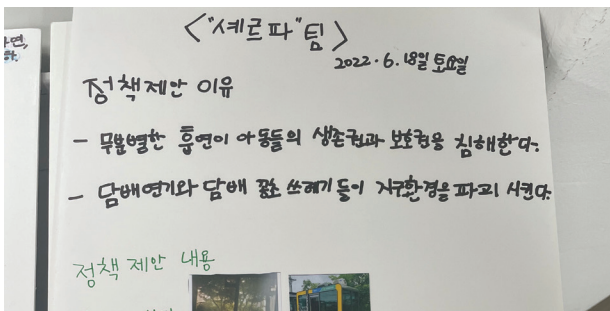 <"셰르파"팀>
2022.6.18일 토요일
정책제안 이유
- 무분별한 흡연이 아동들의 생존권과 보호권을 침해한다.
- 담배연기와 담배 꽁초 쓰레기들이 지구환경을 파괴 시킨다.
정책 제안 내용